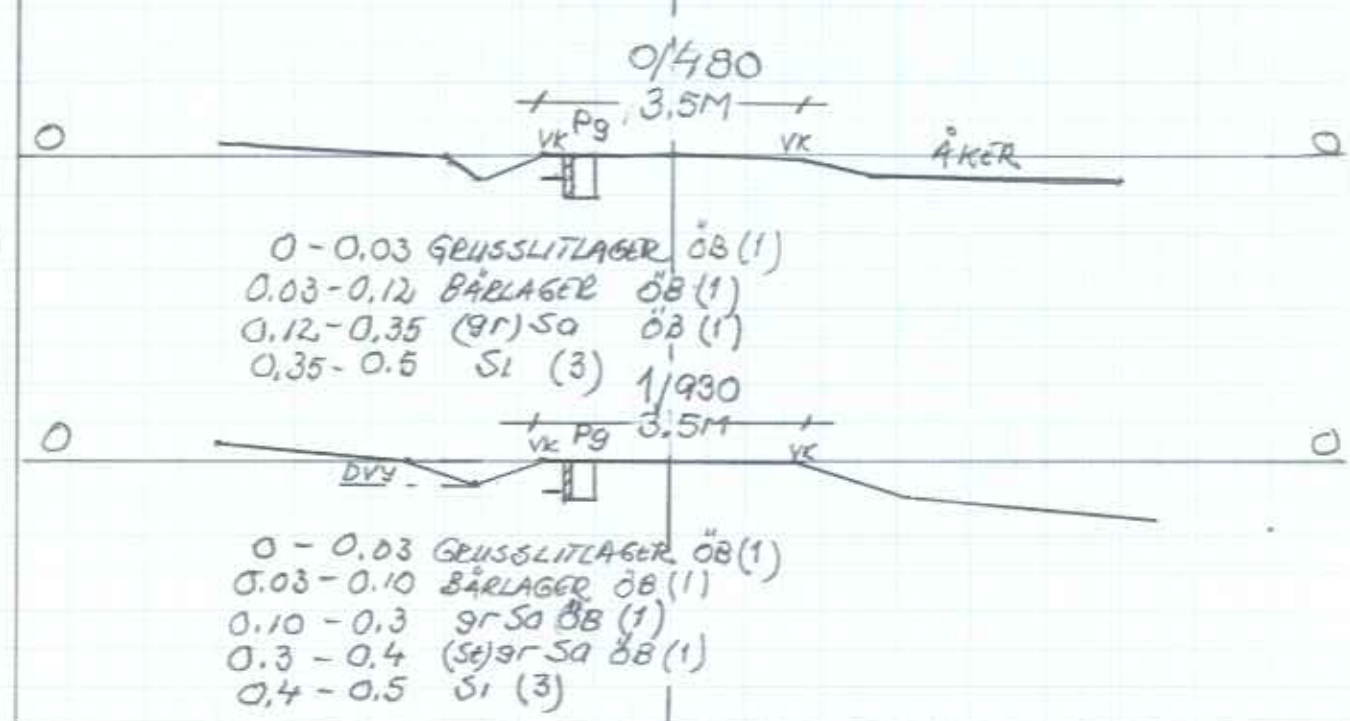 0/480
3.5M
Pg
VK VK
0 ÅKER 0
0 - 0.03 GRUSSLITLAGER ÖB (1)
0.03 - 0.12 BÄRLAGER ÖB (1)
0.12 - 0.35 (gr) Sa ÖB (1)
0.35 - 0.5 Si (3)
1/930
3.5M
VK Pg VK
0 0
DVY
0 - 0.03 GRUSSLITLAGER ÖB (1)
0.03 - 0.10 BÄRLAGER ÖB (1)
0.10 - 0.3 gr Sa ÖB (1)
0.3 - 0.4 (St) gr Sa ÖB (1)
0.4 - 0.5 Si (3)